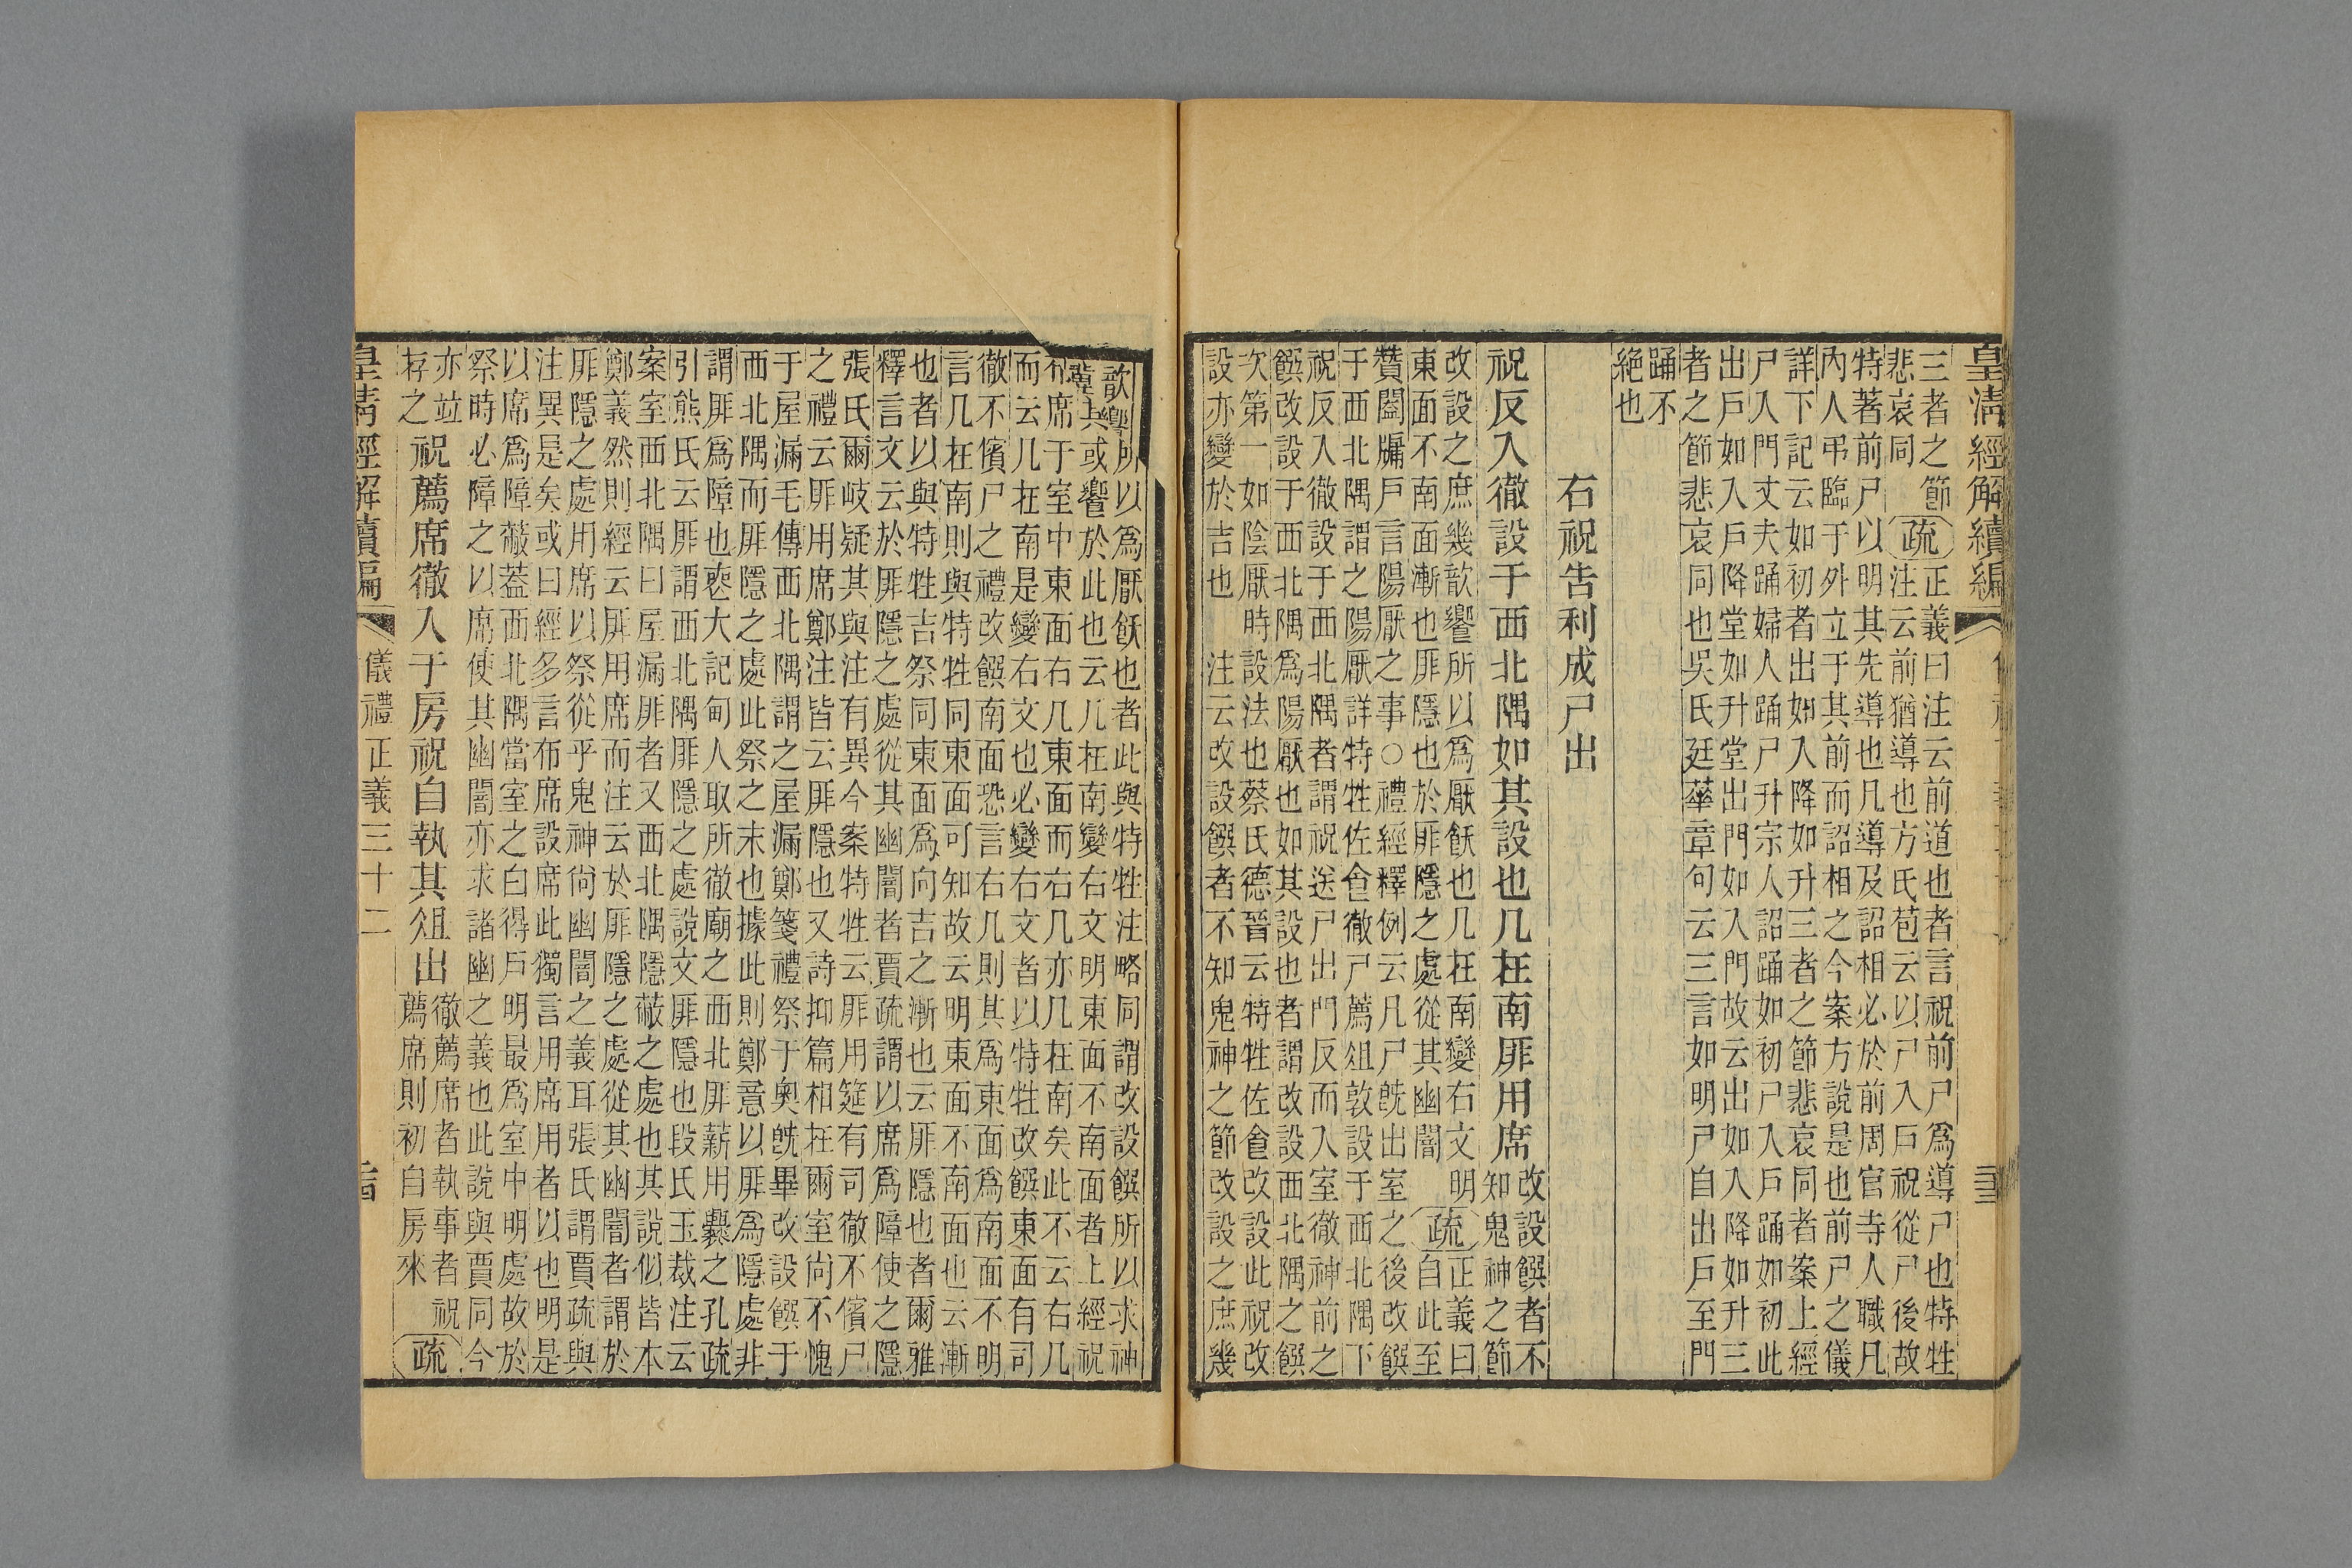 皇清經解續編
三者之節 正義曰注云前道也者言祝前尸爲導尸也特牲
悲哀同 疏 注云前猶導也方氏苞云以尸入戶祝從尸後故
特著前尸以明其先導也凡導及詔相必於前周官寺人職凡
內人弔臨于外立于其前而詔相之今案方說是也前尸之儀
詳下記云如初者出如入降如升三者之節悲哀同者案上經
尸入門丈夫踊婦人踊尸升宗人詔踊如初尸入戶踊如初此
出戶如入戶降堂如升堂出門如入門故云出如入降如升三
者之節悲哀同也吳氏廷華章句云三言如明尸自出戶至門
踊不
絕也
右祝告利成尸出
祝反入徹設于西北隅如其設也几在南厞用席 改設饌者不
知鬼神之節
改設之庶幾歆饗所以爲厭飫也几在南變右文明 正義曰
東面不南面漸也厞隱也於厞隱之處從其幽闇 疏 自此至
贊闔牖戶言陽厭之事○禮經釋例云凡尸既出室之後改饌
于西北隅謂之陽厭詳特牲佐食徹尸薦俎敦設于西北隅下
祝反入徹設于西北隅者謂祝送尸出門反而入室徹神前之
饌改設于西北隅爲陽厭也如其設也者謂改設西北隅之饌
次第一如陰厭時設法也蔡氏德晉云特牲佐食改設此祝改
設亦變於吉也 注云改設饌者不知鬼神之節改設之庶幾
歆饗所以爲厭飫也者此與特牲注略同謂改設饌所以求神
冀其或饗於此也云几在南變右文明東面不南面者上經祝
布席于室中東面右几東面而右几亦几在南矣此不云右几
而云几在南是變右文也必變右文者以特牲改饌東面有司
徹不儐尸之禮改饌南面恐言右几則其爲東面爲南面不明
言几在南則與特牲同東面可知故云明東面不南面也云漸
也者以與特牲吉祭同東面爲向吉之漸也云厞隱也者爾雅
釋言文云於厞隱之處從其幽闇者賈疏謂以席爲障使之隱
張氏爾岐疑其與注有異今案特牲云厞用筵有司徹不儐尸
之禮云厞用席鄭注皆云厞隱也又詩抑篇相在爾室尙不愧
于屋漏毛傳西北隅謂之屋漏鄭箋禮祭于奧既畢改設饌于
西北隅而厞隱之處此祭之末也據此則鄭意以厞爲隱處非
謂厞爲障也喪大記甸人取所徹廟之西北厞薪用爨之孔疏
引熊氏云厞謂西北隅厞隱之處說文厞隱也段氏玉裁注云
案室西北隅曰屋漏厞者又西北隅隱蔽之處也其說似皆本
鄭義然則經云厞用席而注云於厞隱之處從其幽闇者謂於
厞隱之處用席以祭從乎鬼神尙幽闇之義耳張氏謂賈疏與
注異是矣或曰經多言布席設席此獨言用席用者以也明是
以席爲障蔽蓋西北隅當室之白得戶明最爲室中明處故於
祭時必障之以席使其幽闇亦求諸幽之義也此說與賈同今
亦竝
存之 祝薦席徹入于房祝自執其俎出 徹薦席者執事者祝
薦席則初自房來 疏
皇清經解續編 儀禮正義三十二